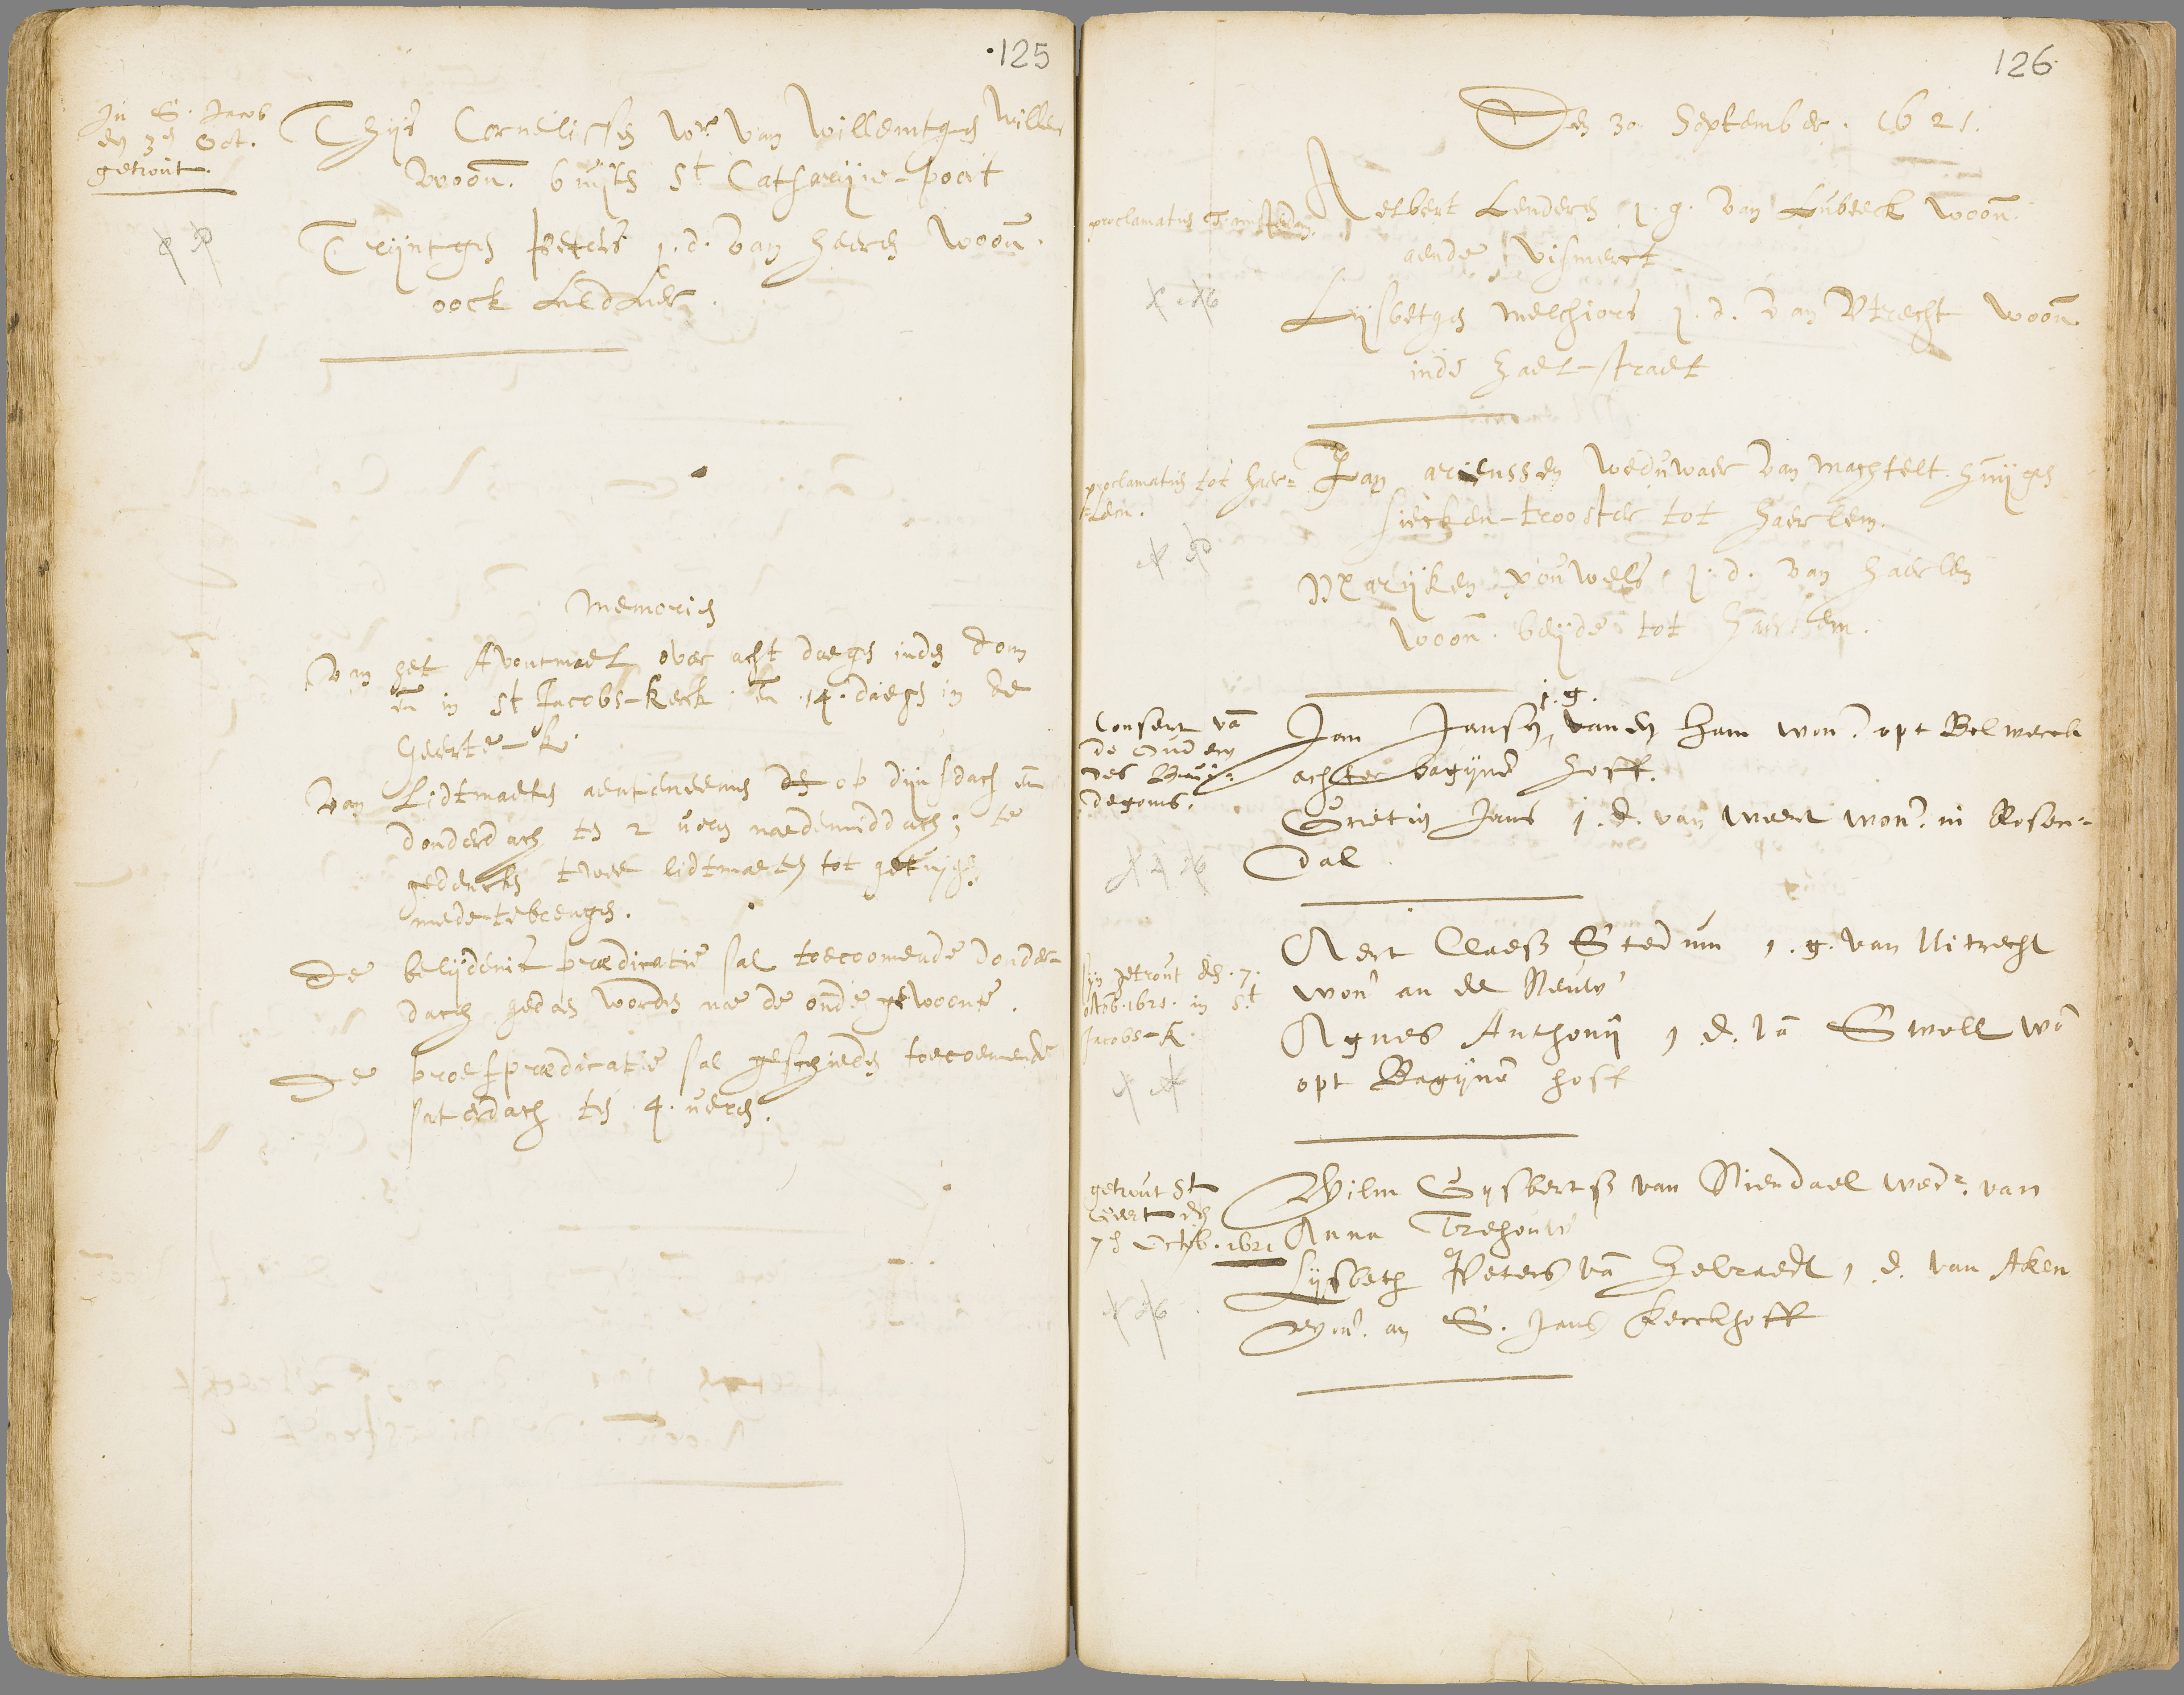 125
In S. Jacob
den 3en Oct.
getrout.
Thijs Cornelissen wr. van Willemtgen Willems
woon. buijten St Catharijne-poort
Trijntgen Peters j.d. van haeren woon.
oock aldaer.
Memorien
Van het Avontmael over acht daegen inden dom
en in St Jacobs-kerck. en 14. daegen in de
Geerte-k.
Van Lidtmaeten aenteneemen op dijnsdach en
donderdach ten 2 uren naedemiddach; te
gedencken twee lidtmaeten tot getuijgen
mede te brengen.
De belijdenis prædicatie sal toecoomende donder-
dach gedaen worden nae de oude gewoonte.
De proefprædicatie sal geschieden toecoemende
saterdach ten 4. uren.
126
Den 30 September. 1621.
proclamatien T'amsterdam
Aelbert Lenderts j.g. van Lubeeck woon.
aende vismerct
Lijsbetgen Melchiors j.d. van Utrecht woon.
inde Zael-straet
proclamatien tot Haer-
lem.
Jan arienssen weduwaer van Machtelt Huijgen
siecken-trooster tot Haerlem.
Marijken pouwels j.d. van Haerlem
woon. beijde tot Haerlem.
Consent van
de Oud en
des Bruij-
degoms.
j.g.
Jan Jansen vanden Ham won. opt Bolwerck
achter bagijne hoff.
Grietien Jans j.d. van Weert won. in Rosen-
dal.
sijn getrout den .7.
octob. 1621. in St
Jacobs-K.
Aert Claess Stedum j.g. van Uitrecht
won an de Neuw
Agnes Anthonij j.d. van Swoll won
opt Bagijne hoff
getrout St
Geert den
7en Octob. 1621
Wilm Gijsbertss van Niendael wedr. van
Anna Trehouw
Lijsbeth Peters van Helraedt j.d. van Aken
Won. an S. Jans Kerckhoff